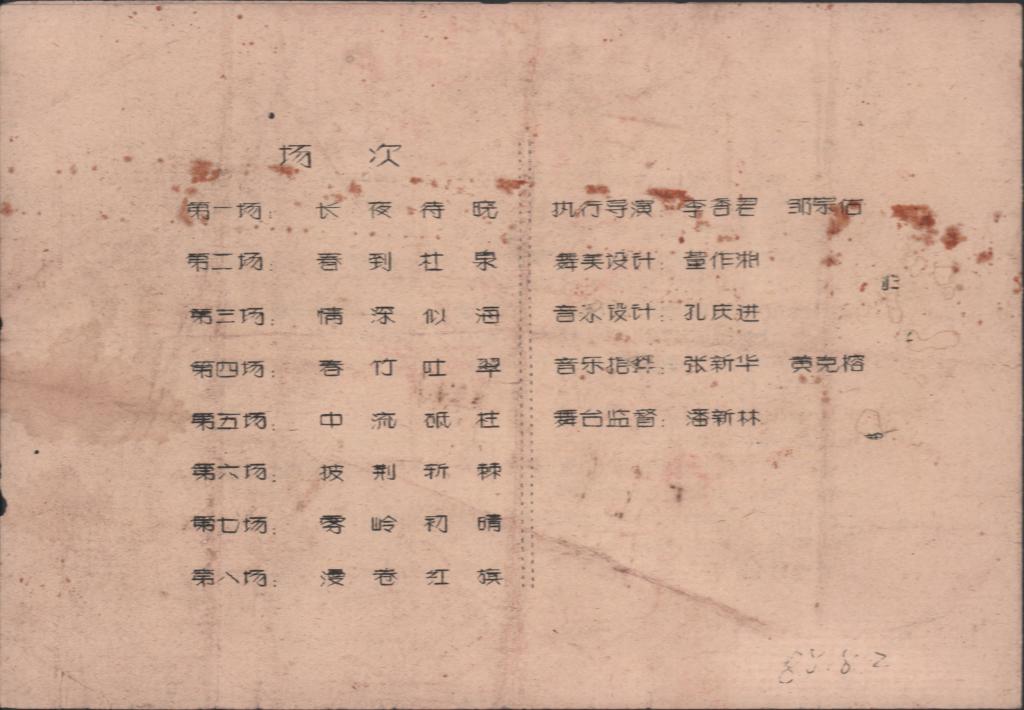 场 次
第一场: 长 夜 待 晓
第二场: 春 到 杜 泉
第三场: 情 深 似 海
第四场: 春 竹 吐 翠
第五场: 中 流 砥 柱
第六场: 披 荆 斩 棘
第七场: 雾 岭 初 晴
第八场: 漫 卷 红 旗
执行导演: 李香君 邹宗佑
舞美设计: 董作湘
音乐设计: 孔庆进
音乐指挥: 张新华 黄克榕
舞台监督: 潘新林